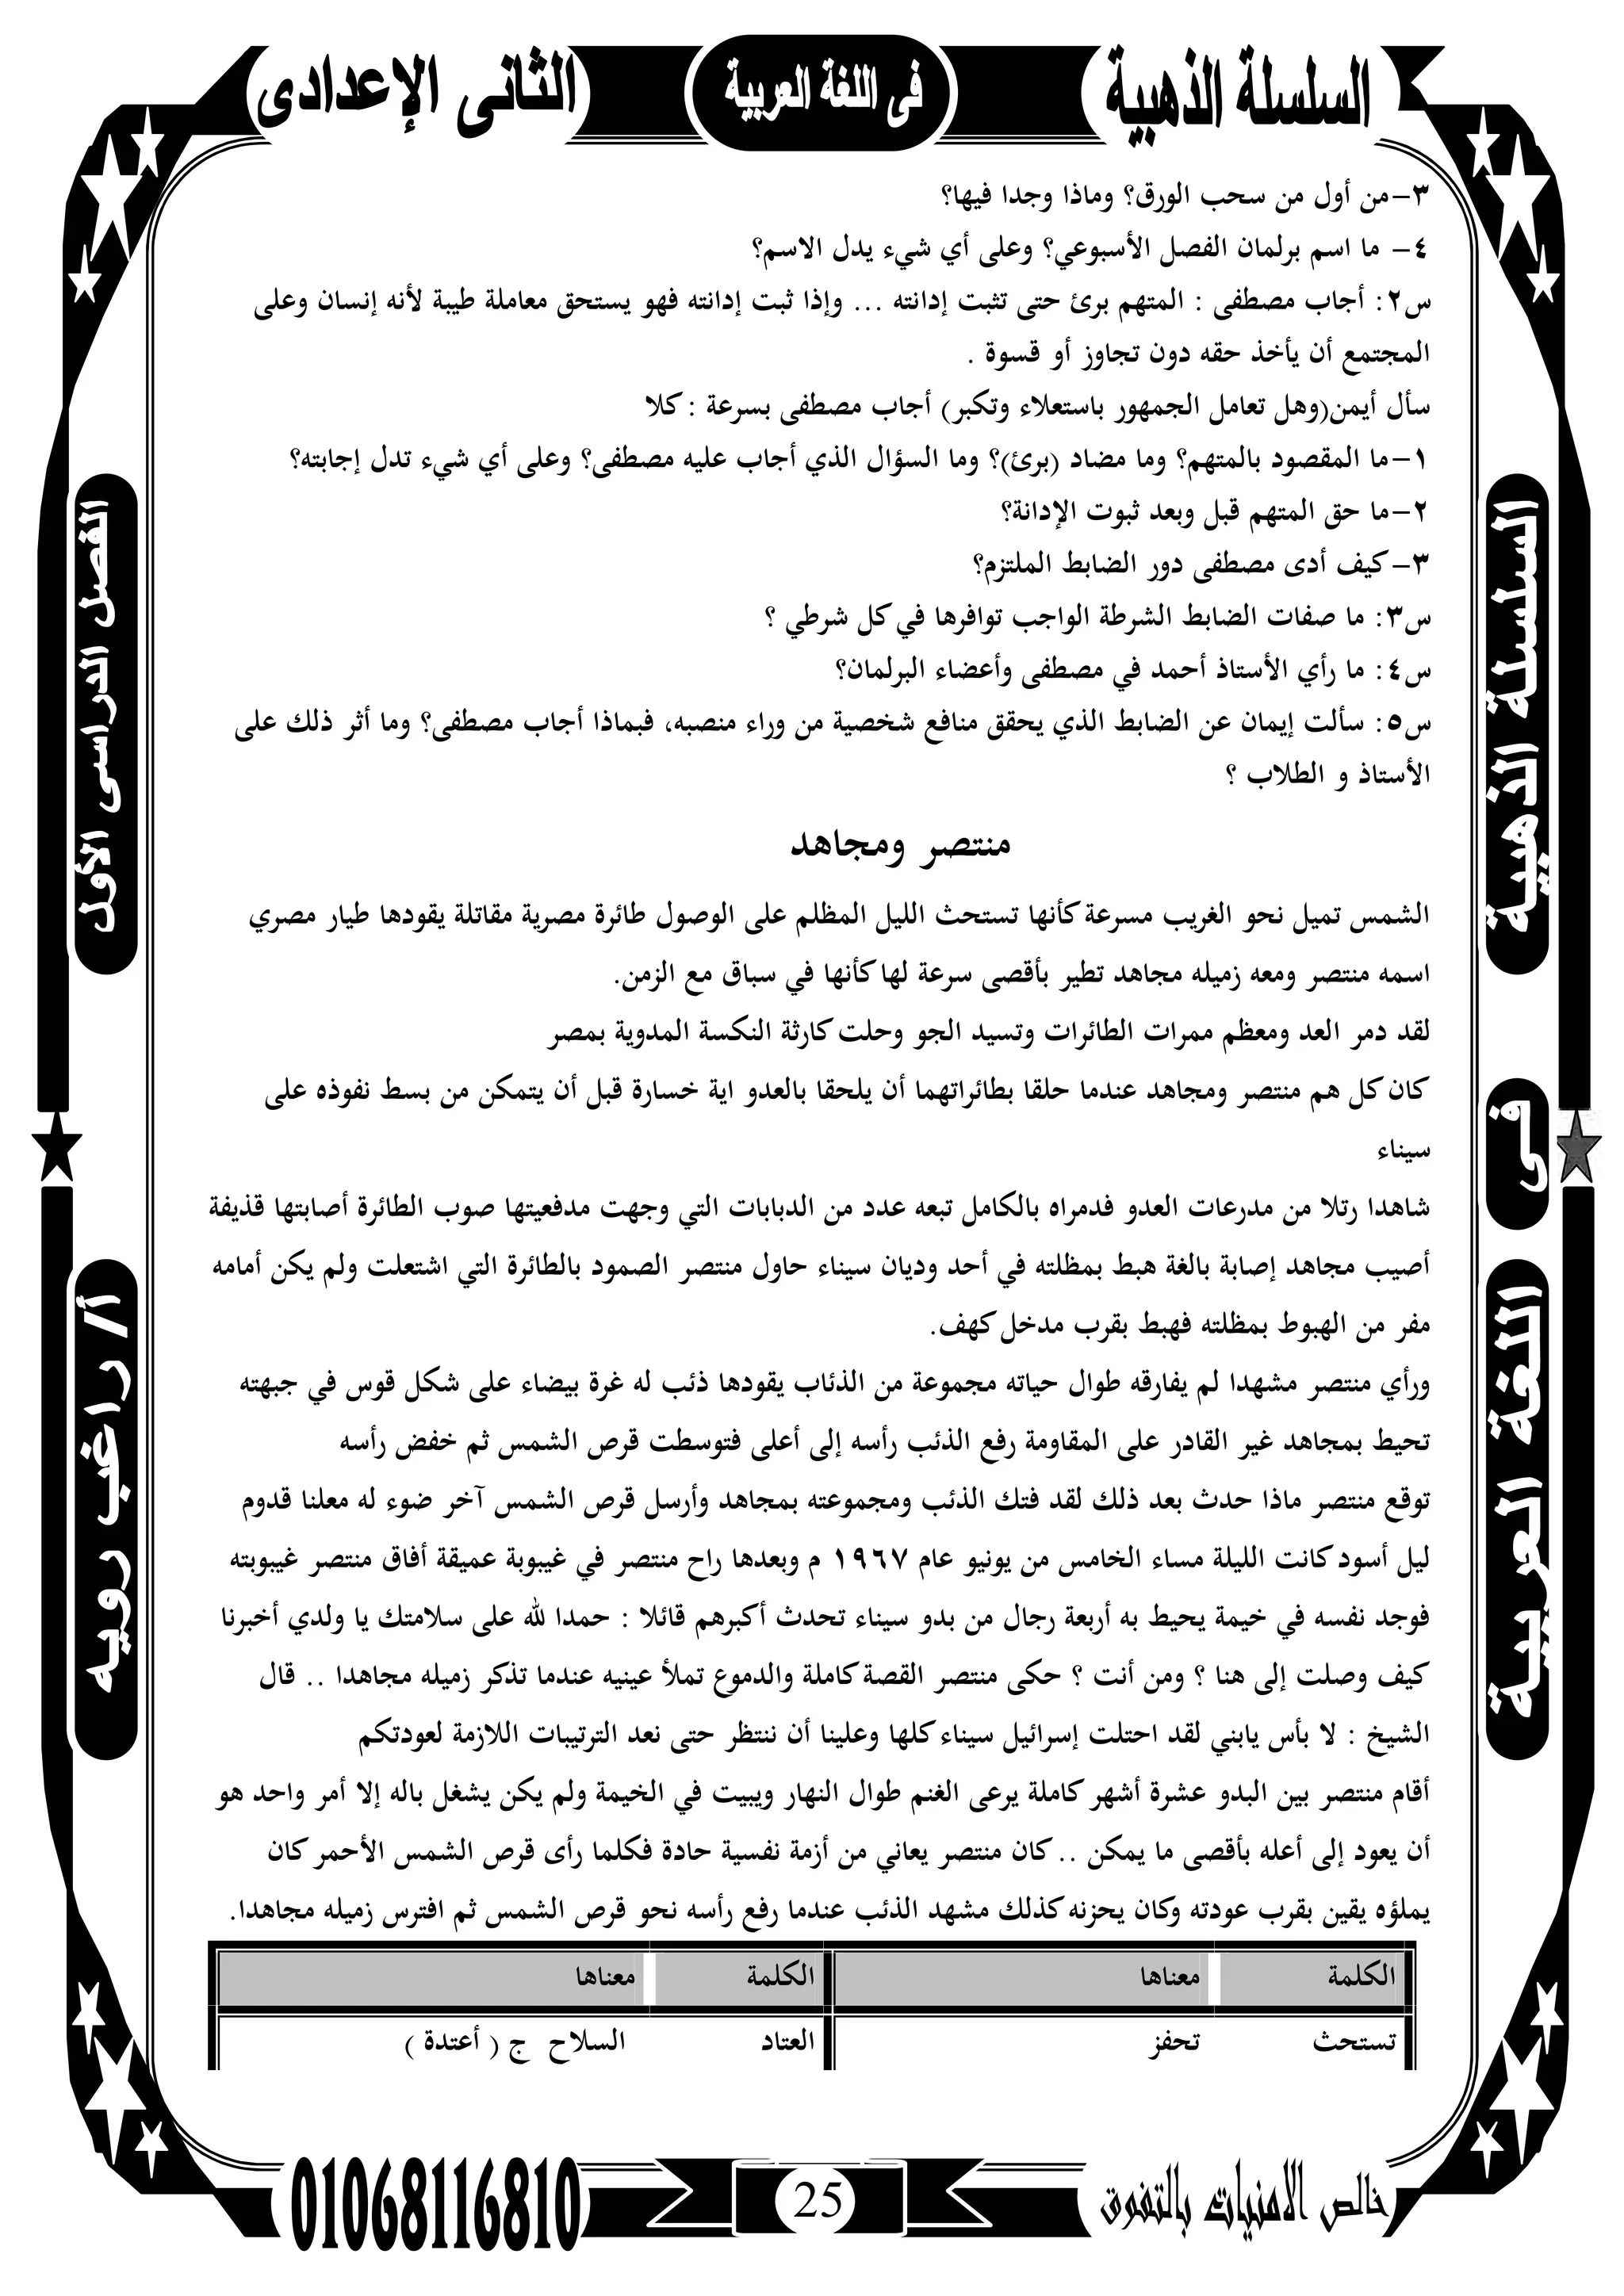 السلسلة الذهبية
فى اللغة العربية
الثانى الإعدادى
٣-من أول من سحب الورق؟ وماذا وجدا فيها؟
٤- ما اسم برلمان الفصل الأسبوعي؟ وعلى أي شيء يدل الاسم؟
س٢: أجاب مصطفى : المتهم برئ حتى تثبت إدانته ... وإذا ثبت إدانته فهو يستحق معاملة طيبة لأنه إنسان وعلى
المجتمع أن يأخذ حقه دون تجاوز أو قسوة .
سأل أيمن(وهل تعامل الجمهور باستعلاء وتكبر) أجاب مصطفى بسرعة : كلا
١-ما المقصود بالمتهم؟ وما مضاد (برئ)؟ وما السؤال الذي أجاب عليه مصطفى؟ وعلى أي شيء تدل إجابته؟
٢-ما حق المتهم قبل وبعد ثبوت الإدانة؟
٣-كيف أدى مصطفى دور الضابط الملتزم؟
س٣: ما صفات الضابط الشرطة الواجب توافرها في كل شرطي ؟
س٤: ما رأي الأستاذ أحمد في مصطفى وأعضاء البرلمان؟
س٥: سألت إيمان عن الضابط الذي يحقق منافع شخصية من وراء منصبه، فبماذا أجاب مصطفى؟ وما أثر ذلك على
الأستاذ و الطلاب ؟
منتصر ومجاهد
الشمس تميل نحو الغريب مسرعة كأنها تستحث الليل المظلم على الوصول طائرة مصرية مقاتلة يقودها طيار مصري
اسمه منتصر ومعه زميله مجاهد تطير بأقصى سرعة لها كأنها في سباق مع الزمن.
لقد دمر العد ومعظم ممرات الطائرات وتسيد الجو وحلت كارثة النكسة المدوية بمصر
كان كل هم منتصر ومجاهد عندما حلقا بطائراتهما أن يلحقا بالعدو اية خسارة قبل أن يتمكن من بسط نفوذه على
سيناء
شاهدا رتلا من مدرعات العدو فدمراه بالكامل تبعه عدد من الدبابات التي وجهت مدفعيتها صوب الطائرة أصابتها قذيفة
أصيب مجاهد إصابة بالغة هبط بمظلته في أحد وديان سيناء حاول منتصر الصمود بالطائرة التي اشتعلت ولم يكن أمامه
مفر من الهبوط بمظلته فهبط بقرب مدخل كهف.
ورأي منتصر مشهدا لم يفارقه طوال حياته مجموعة من الذئاب يقودها ذئب له غرة بيضاء على شكل قوس في جبهته
تحيط بمجاهد غير القادر على المقاومة رفع الذئب رأسه إلى أعلى فتوسطت قرص الشمس ثم خفض رأسه
توقع منتصر ماذا حدث بعد ذلك لقد فتك الذئب ومجموعته بمجاهد وأرسل قرص الشمس آخر ضوء له معلنا قدوم
ليل أسود كانت الليلة مساء الخامس من يونيو عام ١٩٦٧ م وبعدها راح منتصر في غيبوبة عميقة أفاق منتصر غيبوبته
فوجد نفسه في خيمة يحيط به أربعة رجال من بدو سيناء تحدث أكبرهم قائلا : حمدا لله على سلامتك يا ولدي أخبرنا
كيف وصلت إلى هنا ؟ ومن أنت ؟ حكى منتصر القصة كاملة والدموع تملأ عينيه عندما تذكر زميله مجاهدا .. قال
الشيخ : لا بأس يابني لقد احتلت إسرائيل سيناء كلها وعلينا أن ننتظر حتى نعد الترتيبات اللازمة لعودتكم
أقام منتصر بين البدو عشرة أشهر كاملة يرعى الغنم طوال النهار ويبيت في الخيمة ولم يكن يشغل باله إلا أمر واحد هو
أن يعود إلى أعله بأقصى ما يمكن .. كان منتصر يعاني من أزمة نفسية حادة فكلما رأى قرص الشمس الأحمر كان
يملؤه يقين بقرب عودته وكان يحزنه كذلك مشهد الذئب عندما رفع رأسه نحو قرص الشمس ثم افترس زميله مجاهدا.
الكلمة معناها الكلمة معناها
تستحث تحفز العتاد السلاح ج ( أعتدة )
السلسلة الذهبية
فى
اللغة العربية
الفصل الدراسى الأول
أ/ راغب رويه
خالص الامنيات بالتفوق
25
01068116810